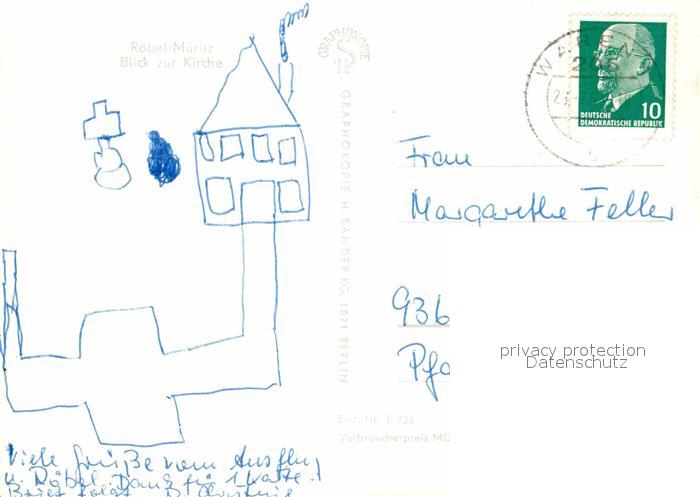 Röbel/Müritz
Blick zur Kirche
GRAPHOKOPIE
GRAPHOKOPIE H. SANDER KG, 1071 BERLIN
WAREN
DEUTSCHE
DEMOKRATISCHE REPUBLIK
10
Frau
Margarethe Feller
936
privacy protection
Datenschutz
Best. Nr. E 736
Verbraucherpreis M
Viele Grüße vom Ausflug
n. Röbel. Dank für Karte.
Brief folgt.